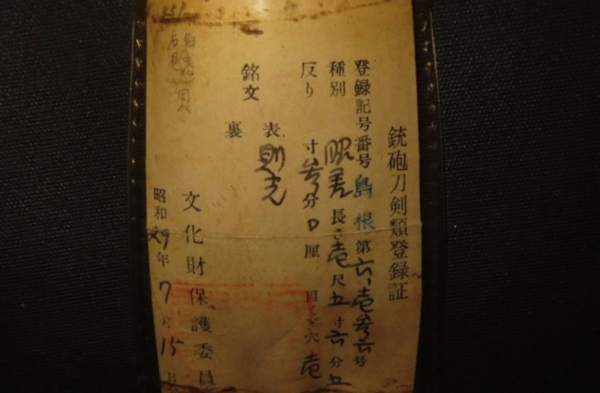 銃砲刀剣類登録証
登録記号番号 島根 第六、壱参六号
種別 脇差 長さ 壱尺五寸六分五
反り 寸参分〇厘 目くぎ穴 壱
銘文 表 則光
裏
文化財保護委員
昭和29年7月15日